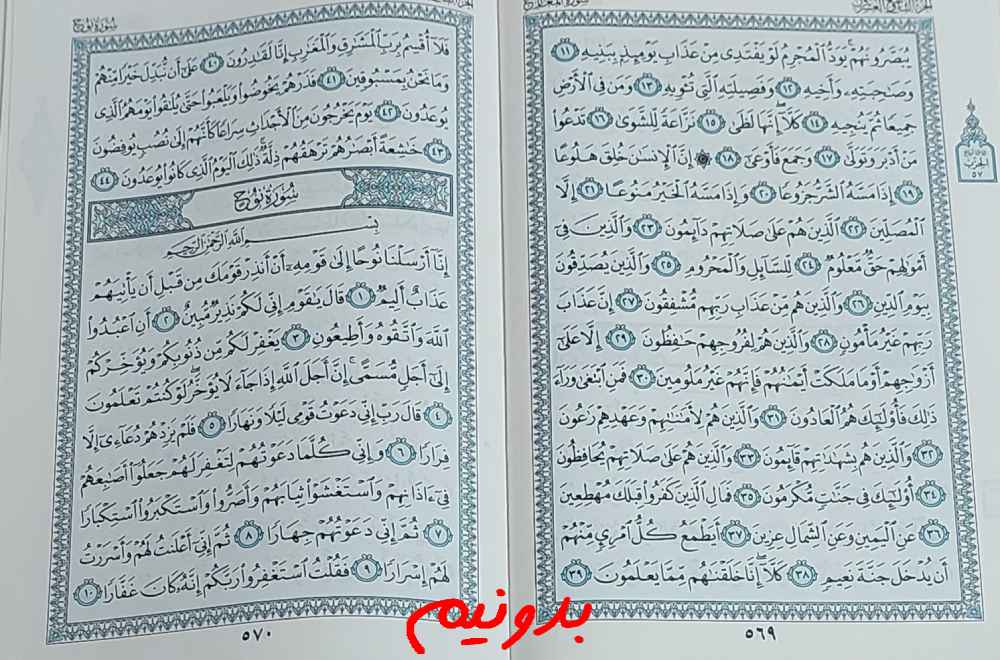 سُورَةُ المَعَارِجِ
يُبَصَّرُونَهُمْ ۚ يَوَدُّ الْمُجْرِمُ لَوْ يَفْتَدِى مِنْ عَذَابِ يَوْمِئِذٍۭ بِبَنِيهِ ١١
وَصَٰحِبَتِهِۦ وَأَخِيهِ ١٢ وَفَصِيلَتِهِ الَّتِى تُـْٔوِيهِ ١٣ وَمَن فِى الْأَرْضِ
جَمِيعًا ثُمَّ يُنجِيهِ ١٤ كَلَّآ ۖ إِنَّهَا لَظَىٰ ١٥ نَزَّاعَةً لِّلشَّوَىٰ ١٦ تَدْعُوا۟
مَنْ أَدْبَرَ وَتَوَلَّىٰ ١٧ وَجَمَعَ فَأَوْعَىٰٓ ١٨ ۞ إِنَّ الْإِنسَٰنَ خُلِقَ هَلُوعًا
١٩ إِذَا مَسَّهُ الشَّرُّ جَزُوعًا ٢٠ وَإِذَا مَسَّهُ الْخَيْرُ مَنُوعًا ٢١ إِلَّا
الْمُصَلِّينَ ٢٢ الَّذِينَ هُمْ عَلَىٰ صَلَاتِهِمْ دَآئِمُونَ ٢٣ وَالَّذِينَ فِىٓ
أَمْوَٰلِهِمْ حَقٌّ مَّعْلُومٌ ٢٤ لِّلسَّآئِلِ وَالْمَحْرُومِ ٢٥ وَالَّذِينَ يُصَدِّقُونَ
بِيَوْمِ الدِّينِ ٢٦ وَالَّذِينَ هُم مِّنْ عَذَابِ رَبِّهِم مُّشْفِقُونَ ٢٧ إِنَّ عَذَابَ
رَبِّهِمْ غَيْرُ مَأْمُونٍ ٢٨ وَالَّذِينَ هُمْ لِفُرُوجِهِمْ حَٰفِظُونَ ٢٩ إِلَّا عَلَىٰٓ
أَزْوَٰجِهِمْ أَوْ مَا مَلَكَتْ أَيْمَٰنُهُمْ فَإِنَّهُمْ غَيْرُ مَلُومِينَ ٣٠ فَمَنِ ابْتَغَىٰ وَرَآءَ
ذَٰلِكَ فَأُو۟لَٰٓئِكَ هُمُ الْعَادُونَ ٣١ وَالَّذِينَ هُمْ لِأَمَٰنَٰتِهِمْ وَعَهْدِهِمْ رَٰعُونَ
٣٢ وَالَّذِينَ هُم بِشَهَٰدَٰتِهِمْ قَآئِمُونَ ٣٣ وَالَّذِينَ هُمْ عَلَىٰ صَلَاتِهِمْ يُحَافِظُونَ
٣٤ أُو۟لَٰٓئِكَ فِى جَنَّٰتٍ مُّكْرَمُونَ ٣٥ فَمَالِ الَّذِينَ كَفَرُوا۟ قِبَلَكَ مُهْطِعِينَ
٣٦ عَنِ الْيَمِينِ وَعَنِ الشِّمَالِ عِزِينَ ٣٧ أَيَطْمَعُ كُلُّ امْرِئٍ مِّنْهُمْ
أَن يُدْخَلَ جَنَّةَ نَعِيمٍ ٣٨ كَلَّآ ۖ إِنَّا خَلَقْنَٰهُم مِّمَّا يَعْلَمُونَ ٣٩
٥٦٩
الحزب
٥٧
سُورَةُ نُوحٍ
فَلَآ أُقْسِمُ بِرَبِّ الْمَشَٰرِقِ وَالْمَغَٰرِبِ إِنَّا لَقَٰدِرُونَ ٤٠ عَلَىٰٓ أَن نُّبَدِّلَ خَيْرًا مِّنْهُمْ
وَمَا نَحْنُ بِمَسْبُوقِينَ ٤١ فَذَرْهُمْ يَخُوضُوا۟ وَيَلْعَبُوا۟ حَتَّىٰ يُلَٰقُوا۟ يَوْمَهُمُ الَّذِى
يُوعَدُونَ ٤٢ يَوْمَ يَخْرُجُونَ مِنَ الْأَجْدَاثِ سِرَاعًا كَأَنَّهُمْ إِلَىٰ نُصُبٍ يُوفِضُونَ
٤٣ خَٰشِعَةً أَبْصَٰرُهُمْ تَرْهَقُهُمْ ذِلَّةٌ ۚ ذَٰلِكَ الْيَوْمُ الَّذِى كَانُوا۟ يُوعَدُونَ ٤٤
سُورَةُ نُوحٍ
بِسْمِ اللَّهِ الرَّحْمَٰنِ الرَّحِيمِ
إِنَّآ أَرْسَلْنَا نُوحًا إِلَىٰ قَوْمِهِۦٓ أَنْ أَنذِرْ قَوْمَكَ مِن قَبْلِ أَن يَأْتِيَهُمْ
عَذَابٌ أَلِيمٌ ١ قَالَ يَٰقَوْمِ إِنِّى لَكُمْ نَذِيرٌ مُّبِينٌ ٢ أَنِ اعْبُدُوا۟
اللَّهَ وَاتَّقُوهُ وَأَطِيعُونِ ٣ يَغْفِرْ لَكُم مِّن ذُنُوبِكُمْ وَيُؤَخِّرْكُمْ
إِلَىٰٓ أَجَلٍ مُّسَمًّى ۚ إِنَّ أَجَلَ اللَّهِ إِذَا جَآءَ لَا يُؤَخَّرُ ۖ لَوْ كُنتُمْ تَعْلَمُونَ
٤ قَالَ رَبِّ إِنِّى دَعَوْتُ قَوْمِى لَيْلًا وَنَهَارًا ٥ فَلَمْ يَزِدْهُمْ دُعَآءِىٓ إِلَّا
فِرَارًا ٦ وَإِنِّى كُلَّمَا دَعَوْتُهُمْ لِتَغْفِرَ لَهُمْ جَعَلُوٓا۟ أَصَٰبِعَهُمْ
فِىٓ ءَاذَانِهِمْ وَاسْتَغْشَوْا۟ ثِيَابَهُمْ وَأَصَرُّوا۟ وَاسْتَكْبَرُوا۟ اسْتِكْبَارًا
٧ ثُمَّ إِنِّى دَعَوْتُهُمْ جِهَارًا ٨ ثُمَّ إِنِّىٓ أَعْلَنتُ لَهُمْ وَأَسْرَرْتُ
لَهُمْ إِسْرَارًا ٩ فَقُلْتُ اسْتَغْفِرُوا۟ رَبَّكُمْ إِنَّهُۥ كَانَ غَفَّارًا ١٠
٥٧٠
بدونیم